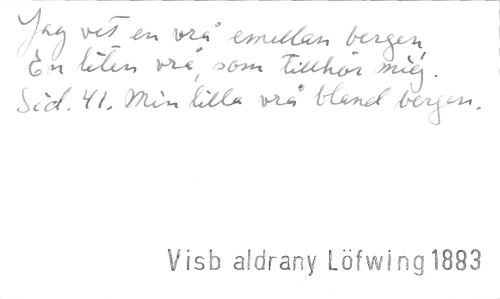 Jag vet en vrå emellan bergen,
En liten vrå, som tillhör mig.
Sid. 41. Min lilla vrå bland bergen.
Visb aldrany Löfwing 1883